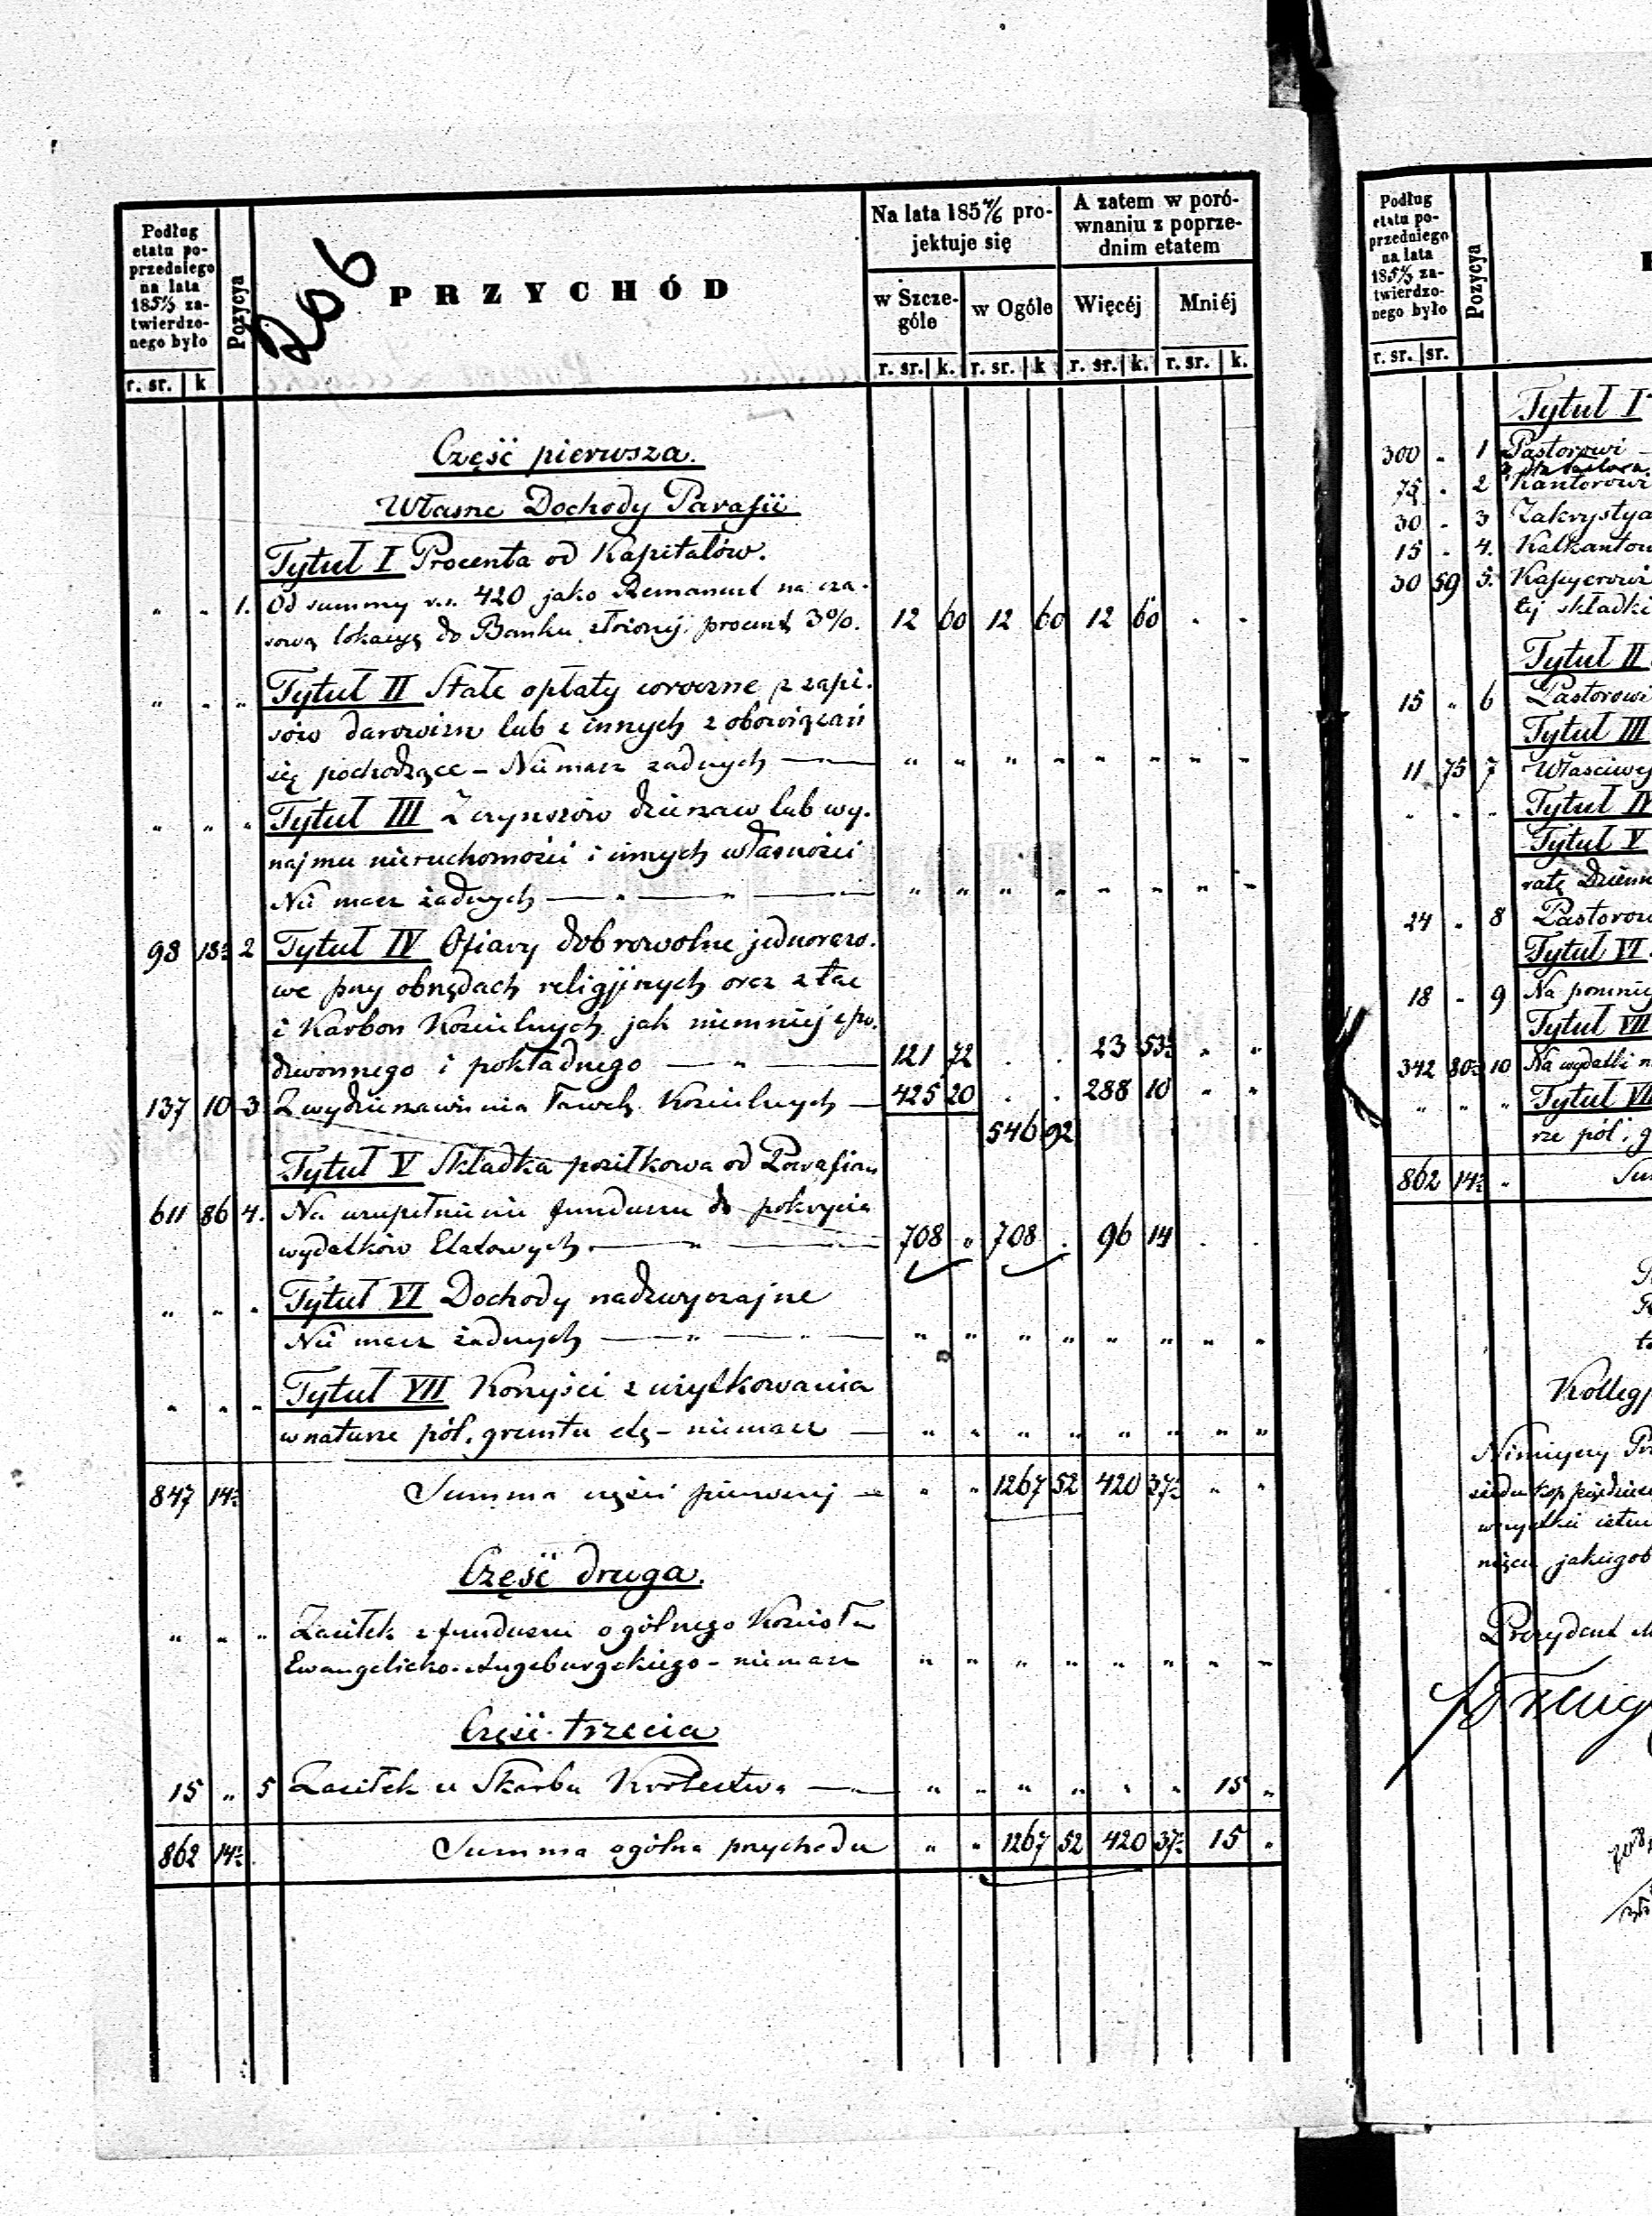 Podług
etatu po-
przedniego
na lata
185 4/5 za-
twierdzo-
nego było
Pozycya
266
PRZYCHÓD
Na lata 185 4/6 pro-
jektuje się
A zatem w poró-
wnaniu z poprze-
dnim etatem
w Szcze-
góle
w Ogóle
Więcéj
Mniéj
r. sr. k
r. sr. k. r. sr. k r. sr. k. r. sr. k.
Część pierwsza.
Własne Dochody Parafii
Tytuł I Procenta od Kapitałów.
" " 1. Od summy r.s. 420 jako Remanent na cza-
sową lokacyę do Banku złożonej, procent 3%. 12 60 12 60 12 60 " "
" " " Tytuł II Stałe opłaty coroczne z zapi-
sów darowizn lub z innych zobowiązań
się pochodzące – Nie masz żadnych " " " " " " " "
" " " Tytuł III Z czynszów dzierżaw lub wy-
najmu nieruchomości i innych własności
Nie masz żadnych " " " " " " " "
98 18½ 2 Tytuł IV Ofiary dobrowolne jednorazo-
we przy obrzędach religijnych oraz z tac
i Karbon Kościelnych jak niemniej z po-
dzwonnego i pokładnego 121 72 . . 23 53½ " "
137 10 3 Z wydzierzawienia Ławek Kościelnych 425 20 . . 288 10 " "
546 92
Tytuł V Składka posiłkowa od Parafian
611 86 4. Na uzupełnienie funduszu do pokrycia
wydatków Etatowych. 708 " 708 . 96 14 . .
" " " Tytuł VI Dochody nadzwyczajne
Nie masz żadnych " " " " " " " "
" " " Tytuł VII Korzyści z użytkowania
w naturze pól, gruntu etc – niemasz " " " " " " " "
847 14½ Summa części pierwszej " " 1267 52 420 37½ " "
Część druga.
" " " Zasiłek z funduszu ogólnego Kościoła
Ewangelicko-Augsburgskiego – niemasz " " " " " " " "
Część trzecia
15 " 5 Zasiłek ze Skarbu Królestwa " " " " " " 15 "
862 14½ Summa ogólna przychodu " " 1267 52 420 37½ 15 "
Podług
etatu po-
przedniego
na lata
185 4/5 za-
twierdzo-
nego było
Pozycya
r. sr. sr.
Tytuł I
300 " 1 Pastorowi
75 " 2 Kantorowi
30 " 3 Zakrystya
15 " 4. Kalkantow
30 59 5. Kassyerowi
tej składki
Tytuł II
15 " 6 Pastorowi
Tytuł III
11 75 7 Właściwej
" " " Tytuł IV
Tytuł V
ratę Dzienn
24 " 8 Pastorow
Tytuł VI
18 " 9 Na pomniej
Tytuł VII
342 80½ 10 Na wydatki n
" " " Tytuł VII
rze pól, g
862 14½ " Su
Kollegj
Niniejszy
wszystkie
jakiegob
Prezydent